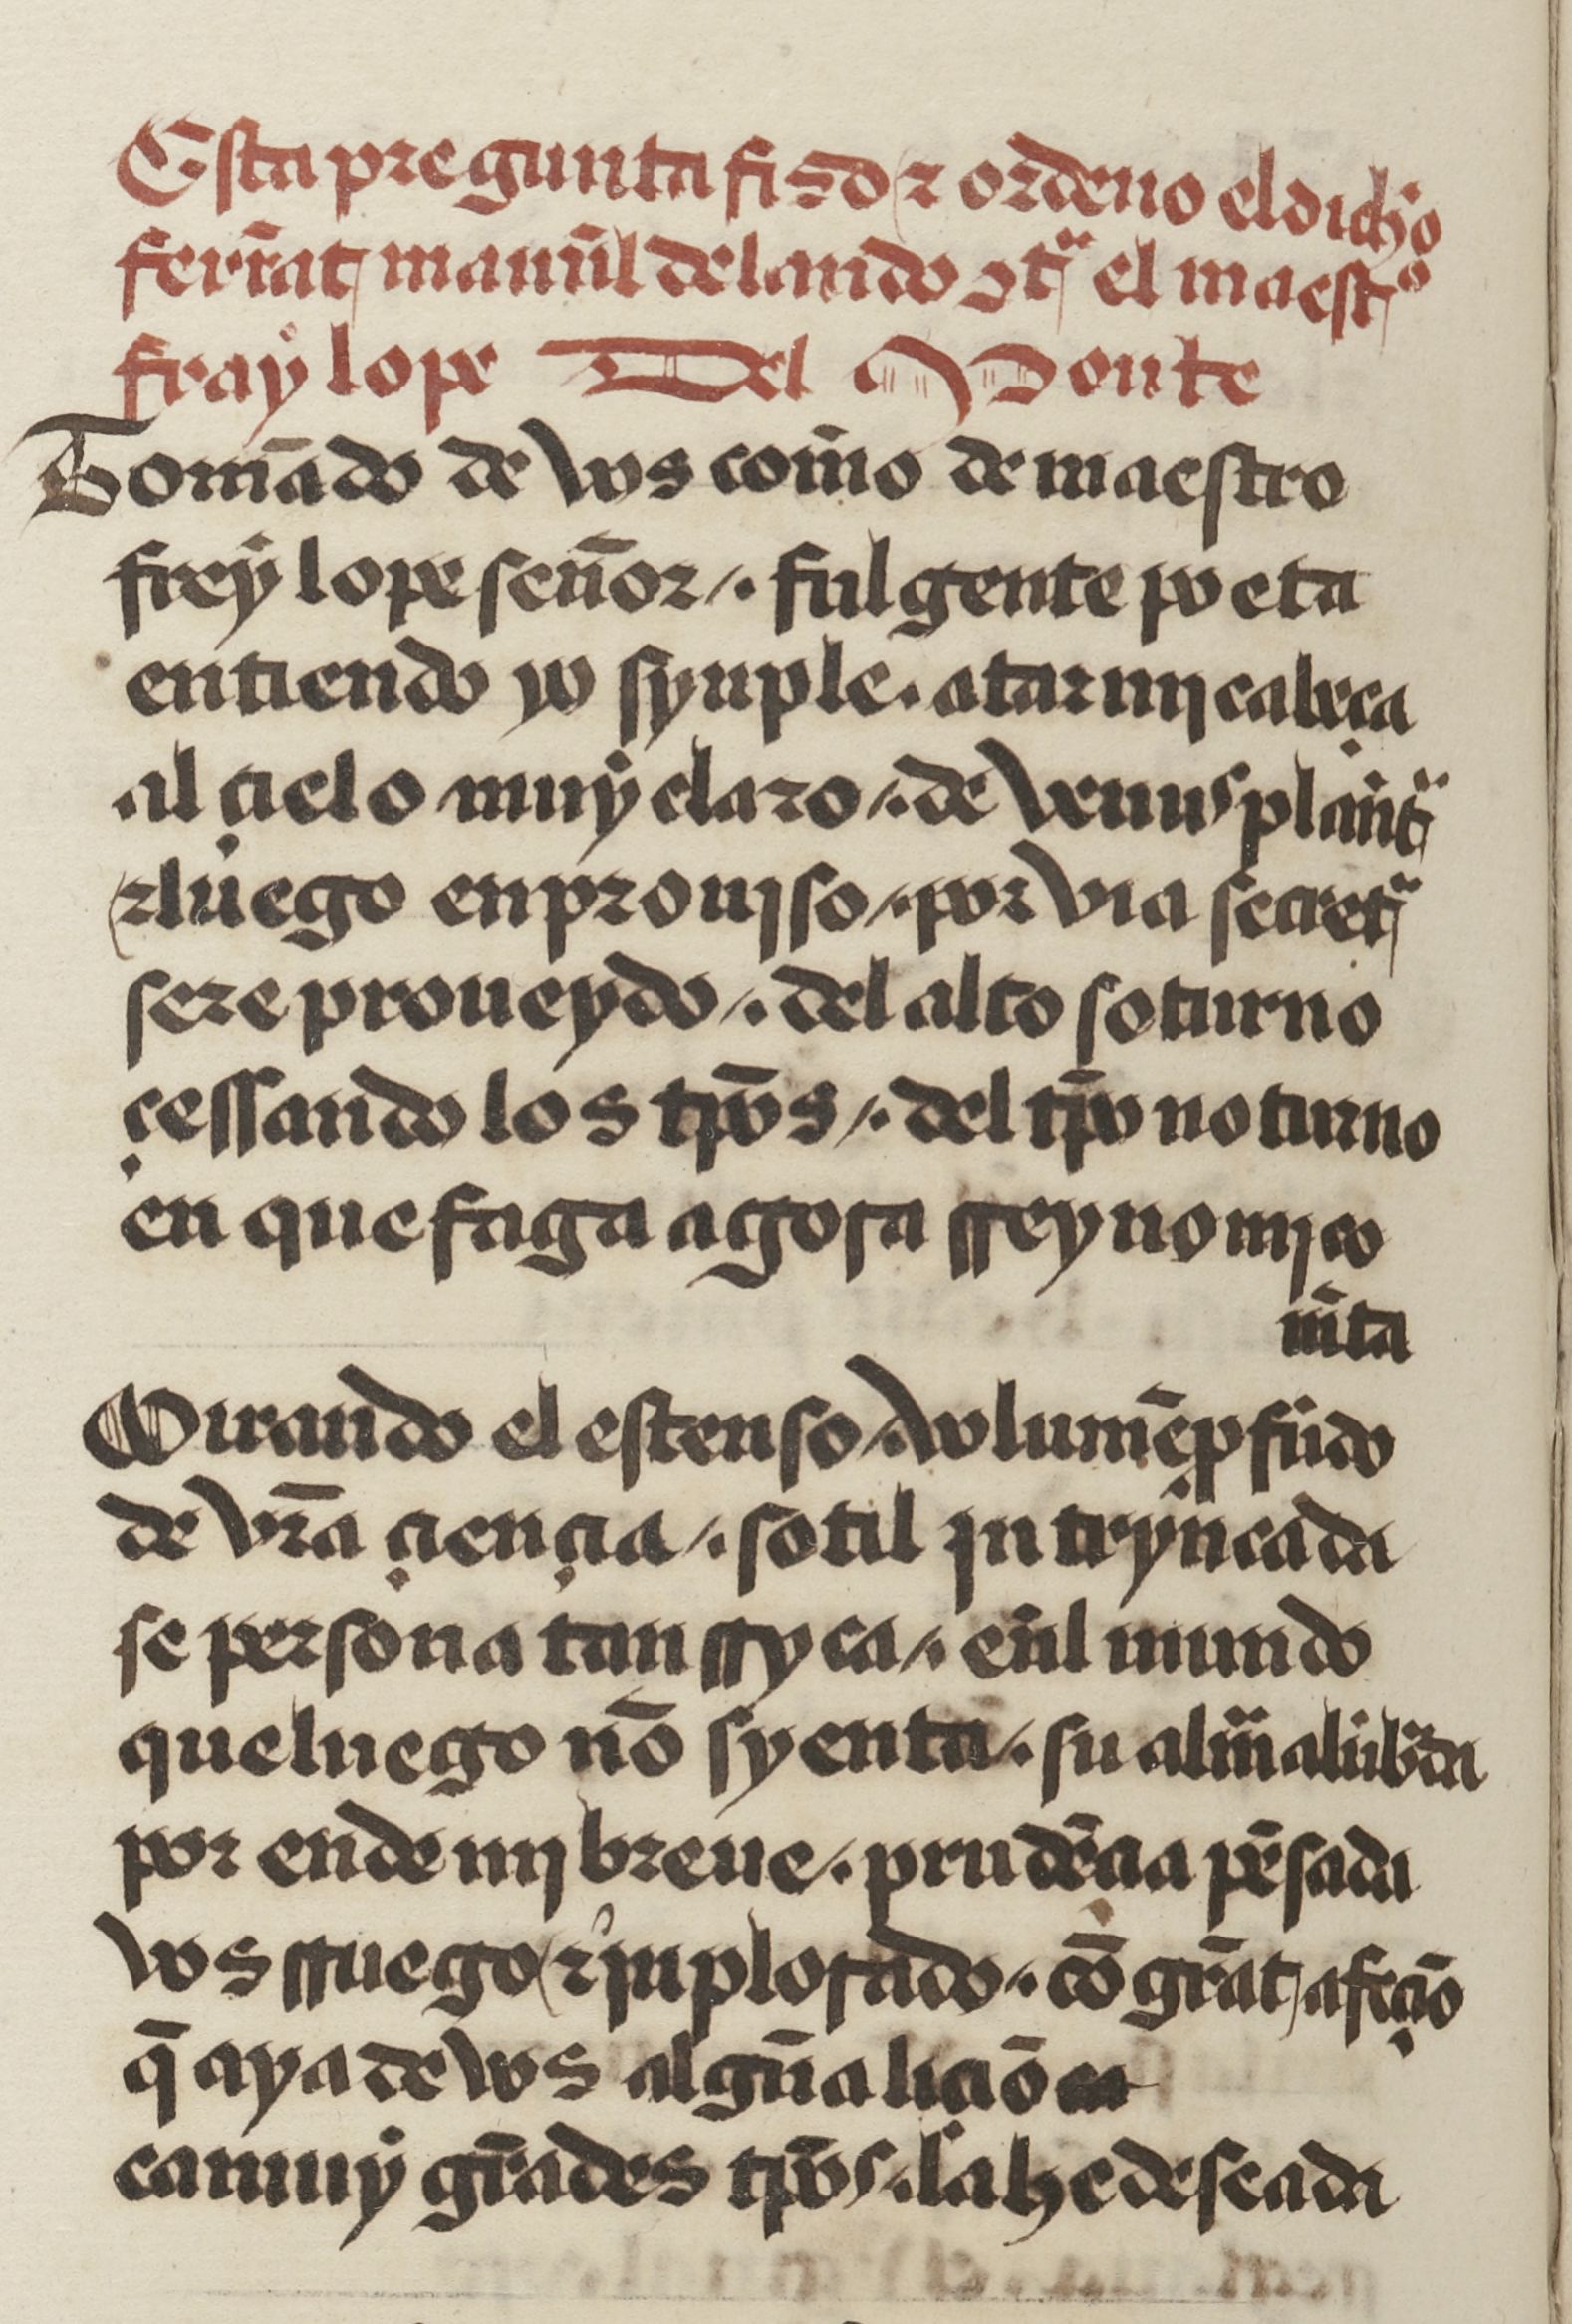 Esta pregunta fiso ⁊ ordeno el dicho
ferrãt manũl de lando ↄtª el maestº
fray lope Del Monte
Tomãdo de vos com̃o de maestro
frey lope señor /. fulgente poeta
entiendo yo synple . atar mj cabeça
al çielo muy claro /. de venus planetª
⁊ luego en prouiso /. por via secretª
sere proueydo /. del alto soturno
çessando los tp̃os /. del tp̃o noturno
en que faga agora rreyno mj co
m̃ta
Mirando el estenso /. volumẽ ꝓfũdo
de vr̃a çiençia /. sotil jntryncada
se persona tan rryca /. eñl mundo
que luego nõ syenta /. su alm̃a alũbrada
por ende mj breue . prudẽçia pẽsada
vos rruego ⁊ jnplorado . cõ grãt afeçiõ
q̃ aya de vos algũa liçiõ
ca muy grãdes tp̃os . la he deseada